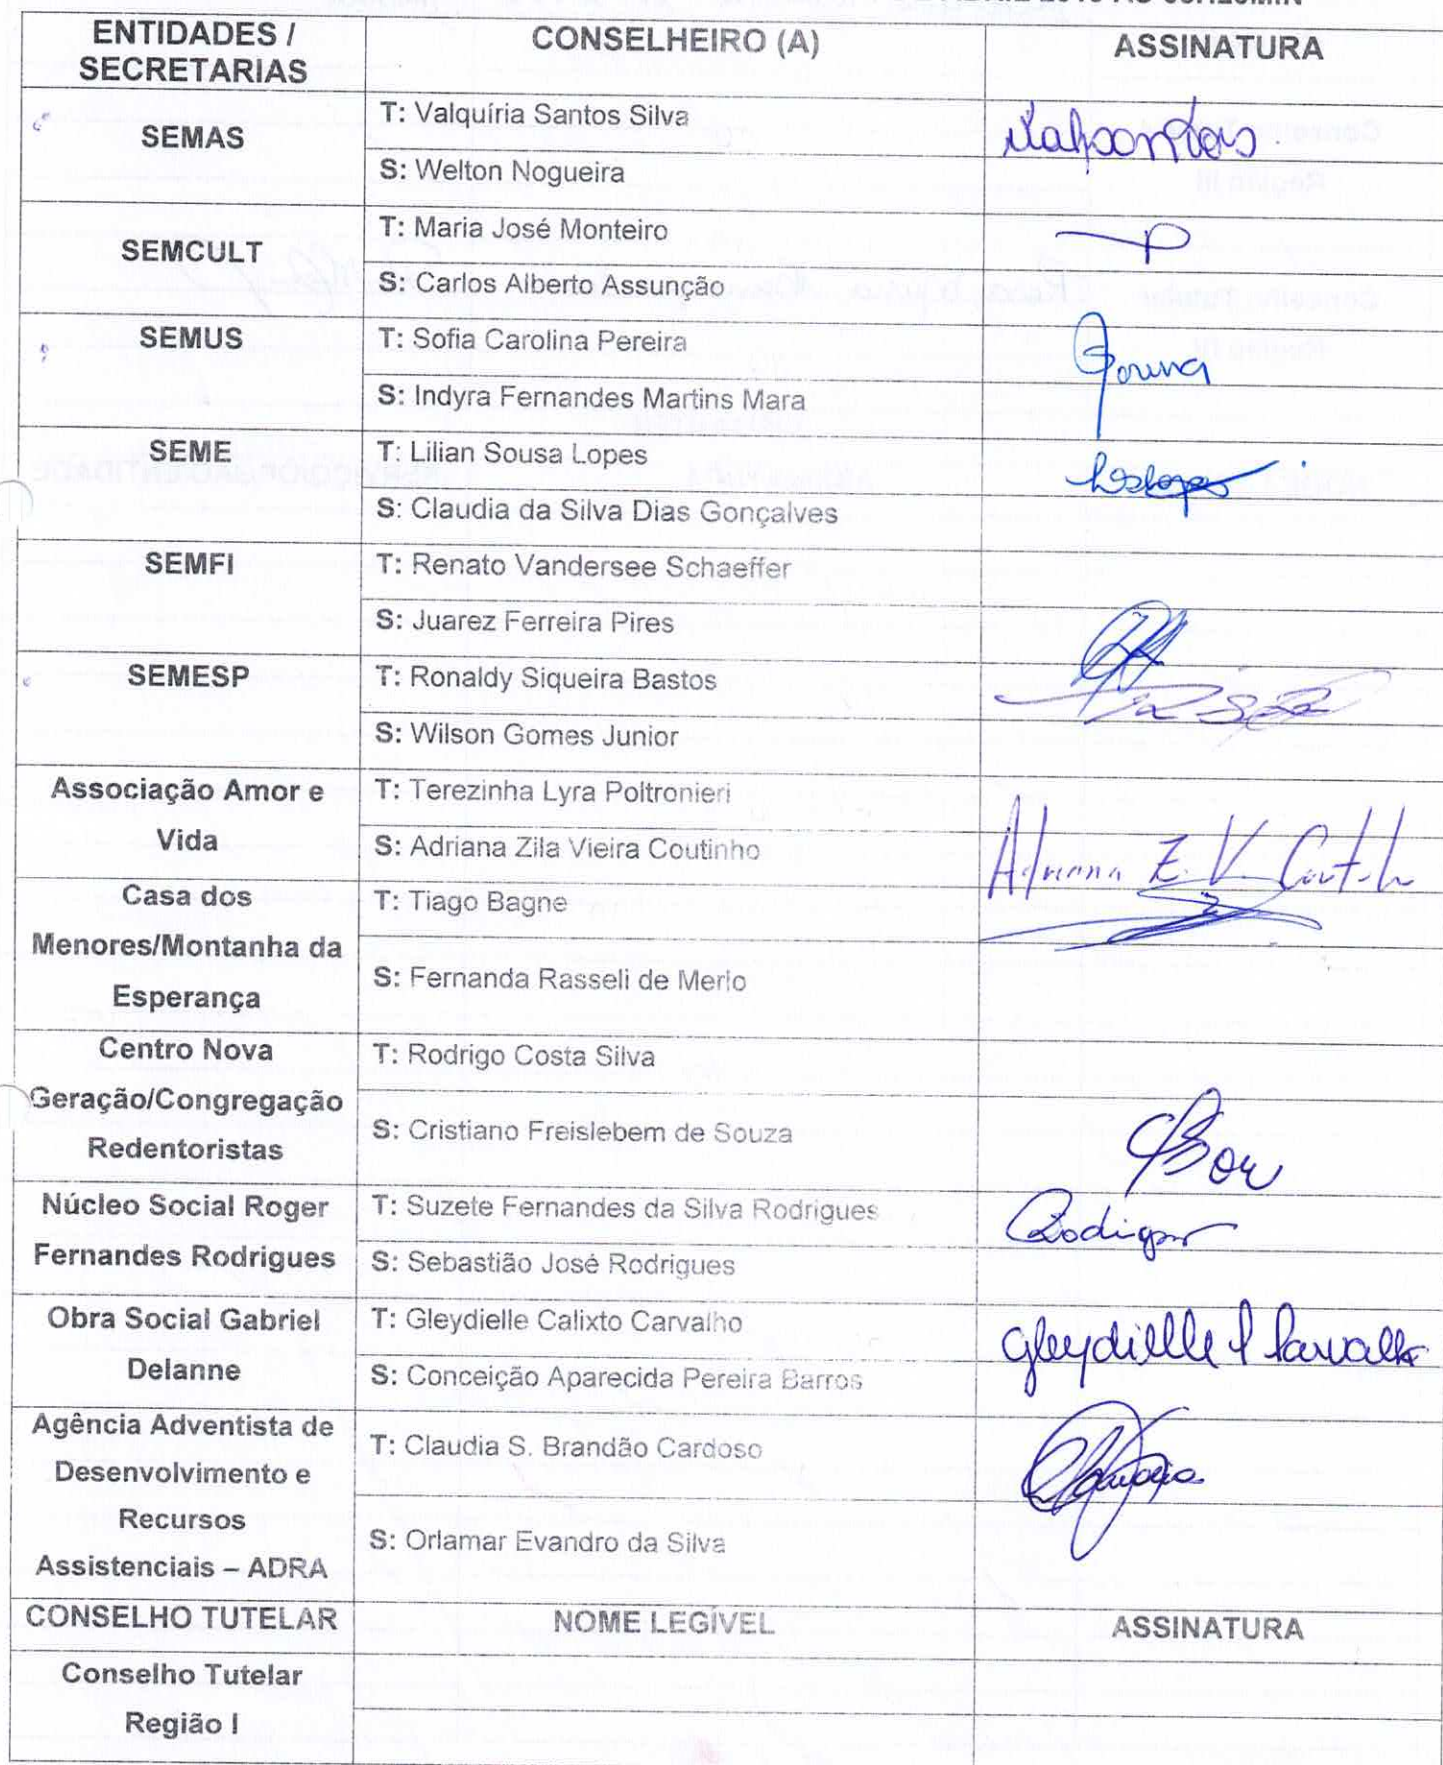 ENTIDADES /
SECRETARIAS
CONSELHEIRO (A)
ASSINATURA
SEMAS
T: Valquíria Santos Silva
S: Welton Nogueira
SEMCULT
T: Maria José Monteiro
S: Carlos Alberto Assunção
SEMUS
T: Sofia Carolina Pereira
S: Indyra Fernandes Martins Mara
SEME
T: Lilian Sousa Lopes
S: Claudia da Silva Dias Gonçalves
SEMFI
T: Renato Vandersee Schaeffer
S: Juarez Ferreira Pires
SEMESP
T: Ronaldy Siqueira Bastos
S: Wilson Gomes Junior
Associação Amor e
Vida
T: Terezinha Lyra Poltronieri
S: Adriana Zila Vieira Coutinho
Adriana Z. V. Coutinho
Casa dos
Menores/Montanha da
Esperança
T: Tiago Bagne
S: Fernanda Rasseli de Merlo
Centro Nova
Geração/Congregação
Redentoristas
T: Rodrigo Costa Silva
S: Cristiano Freislebem de Souza
Núcleo Social Roger
Fernandes Rodrigues
T: Suzete Fernandes da Silva Rodrigues
S: Sebastião José Rodrigues
Obra Social Gabriel
Delanne
T: Gleydielle Calixto Carvalho
S: Conceição Aparecida Pereira Barros
Gleydielle C Carvalho
Agência Adventista de
Desenvolvimento e
Recursos
Assistenciais – ADRA
T: Claudia S. Brandão Cardoso
S: Orlamar Evandro da Silva
CONSELHO TUTELAR
NOME LEGÍVEL
ASSINATURA
Conselho Tutelar
Região I